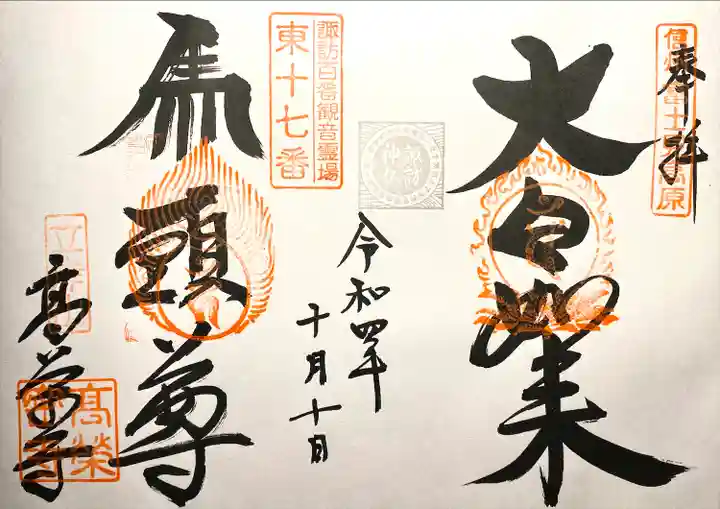 奉拝
大日如来
令和四年
十月十日
諏訪百番観音霊場
東十七番
馬頭尊
高栄寺
高榮